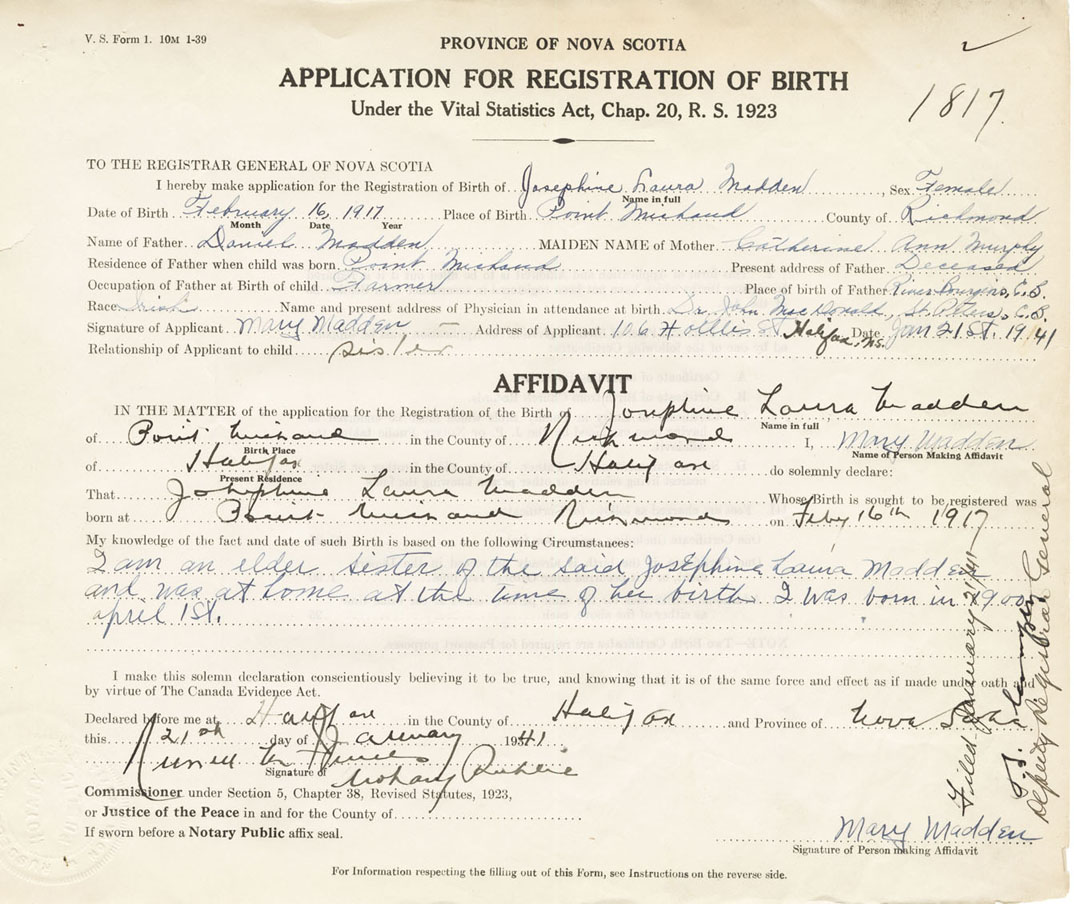 V. S. Form 1. 10M 1-39
PROVINCE OF NOVA SCOTIA
APPLICATION FOR REGISTRATION OF BIRTH
Under the Vital Statistics Act, Chap. 20, R. S. 1923
1817
TO THE REGISTRAR GENERAL OF NOVA SCOTIA
I hereby make application for the Registration of Birth of Josephine Laura Madden, Sex Female
Name in full
Date of Birth February 16, 1917 Place of Birth Point Michaud County of Richmond
Month Date Year
Name of Father Daniel Madden MAIDEN NAME of Mother Catherine Ann Murphy
Residence of Father when child was born Point Michaud Present address of Father Deceased
Occupation of Father at Birth of child Farmer Place of birth of Father River Bourgeois, C.B.
Race Irish Name and present address of Physician in attendance at birth Dr. John MacDonald, St. Peters, C.B.
Signature of Applicant Mary Madden — Address of Applicant 106 Hollis St Halifax, N.S. Date Jan 21st. 1941
Relationship of Applicant to child sister
AFFIDAVIT
IN THE MATTER of the application for the Registration of the Birth of Josephine Laura Madden
Name in full
of Point Michaud in the County of Richmond I, Mary Madden
Birth Place Name of Person Making Affidavit
of Halifax in the County of Halifax do solemnly declare:
Present Residence
That Josephine Laura Madden Whose Birth is sought to be registered was
born at Point Michaud Richmond on Feby 16th 1917
My knowledge of the fact and date of such Birth is based on the following Circumstances:
I am an elder sister of the said Josephine Laura Madden
and was at home at the time of her birth. I was born in 1900
april 1st.
I make this solemn declaration conscientiously believing it to be true, and knowing that it is of the same force and effect as if made under oath and
by virtue of The Canada Evidence Act.
Declared before me at Halifax in the County of Halifax and Province of Nova Scotia
this 21st day of January 1941
Signature of Notary Public
Commissioner under Section 5, Chapter 38, Revised Statutes, 1923,
or Justice of the Peace in and for the County of
If sworn before a Notary Public affix seal.
Mary Madden
Signature of Person making Affidavit
For Information respecting the filling out of this Form, see Instructions on the reverse side.
Filed January
Deputy Registrar General